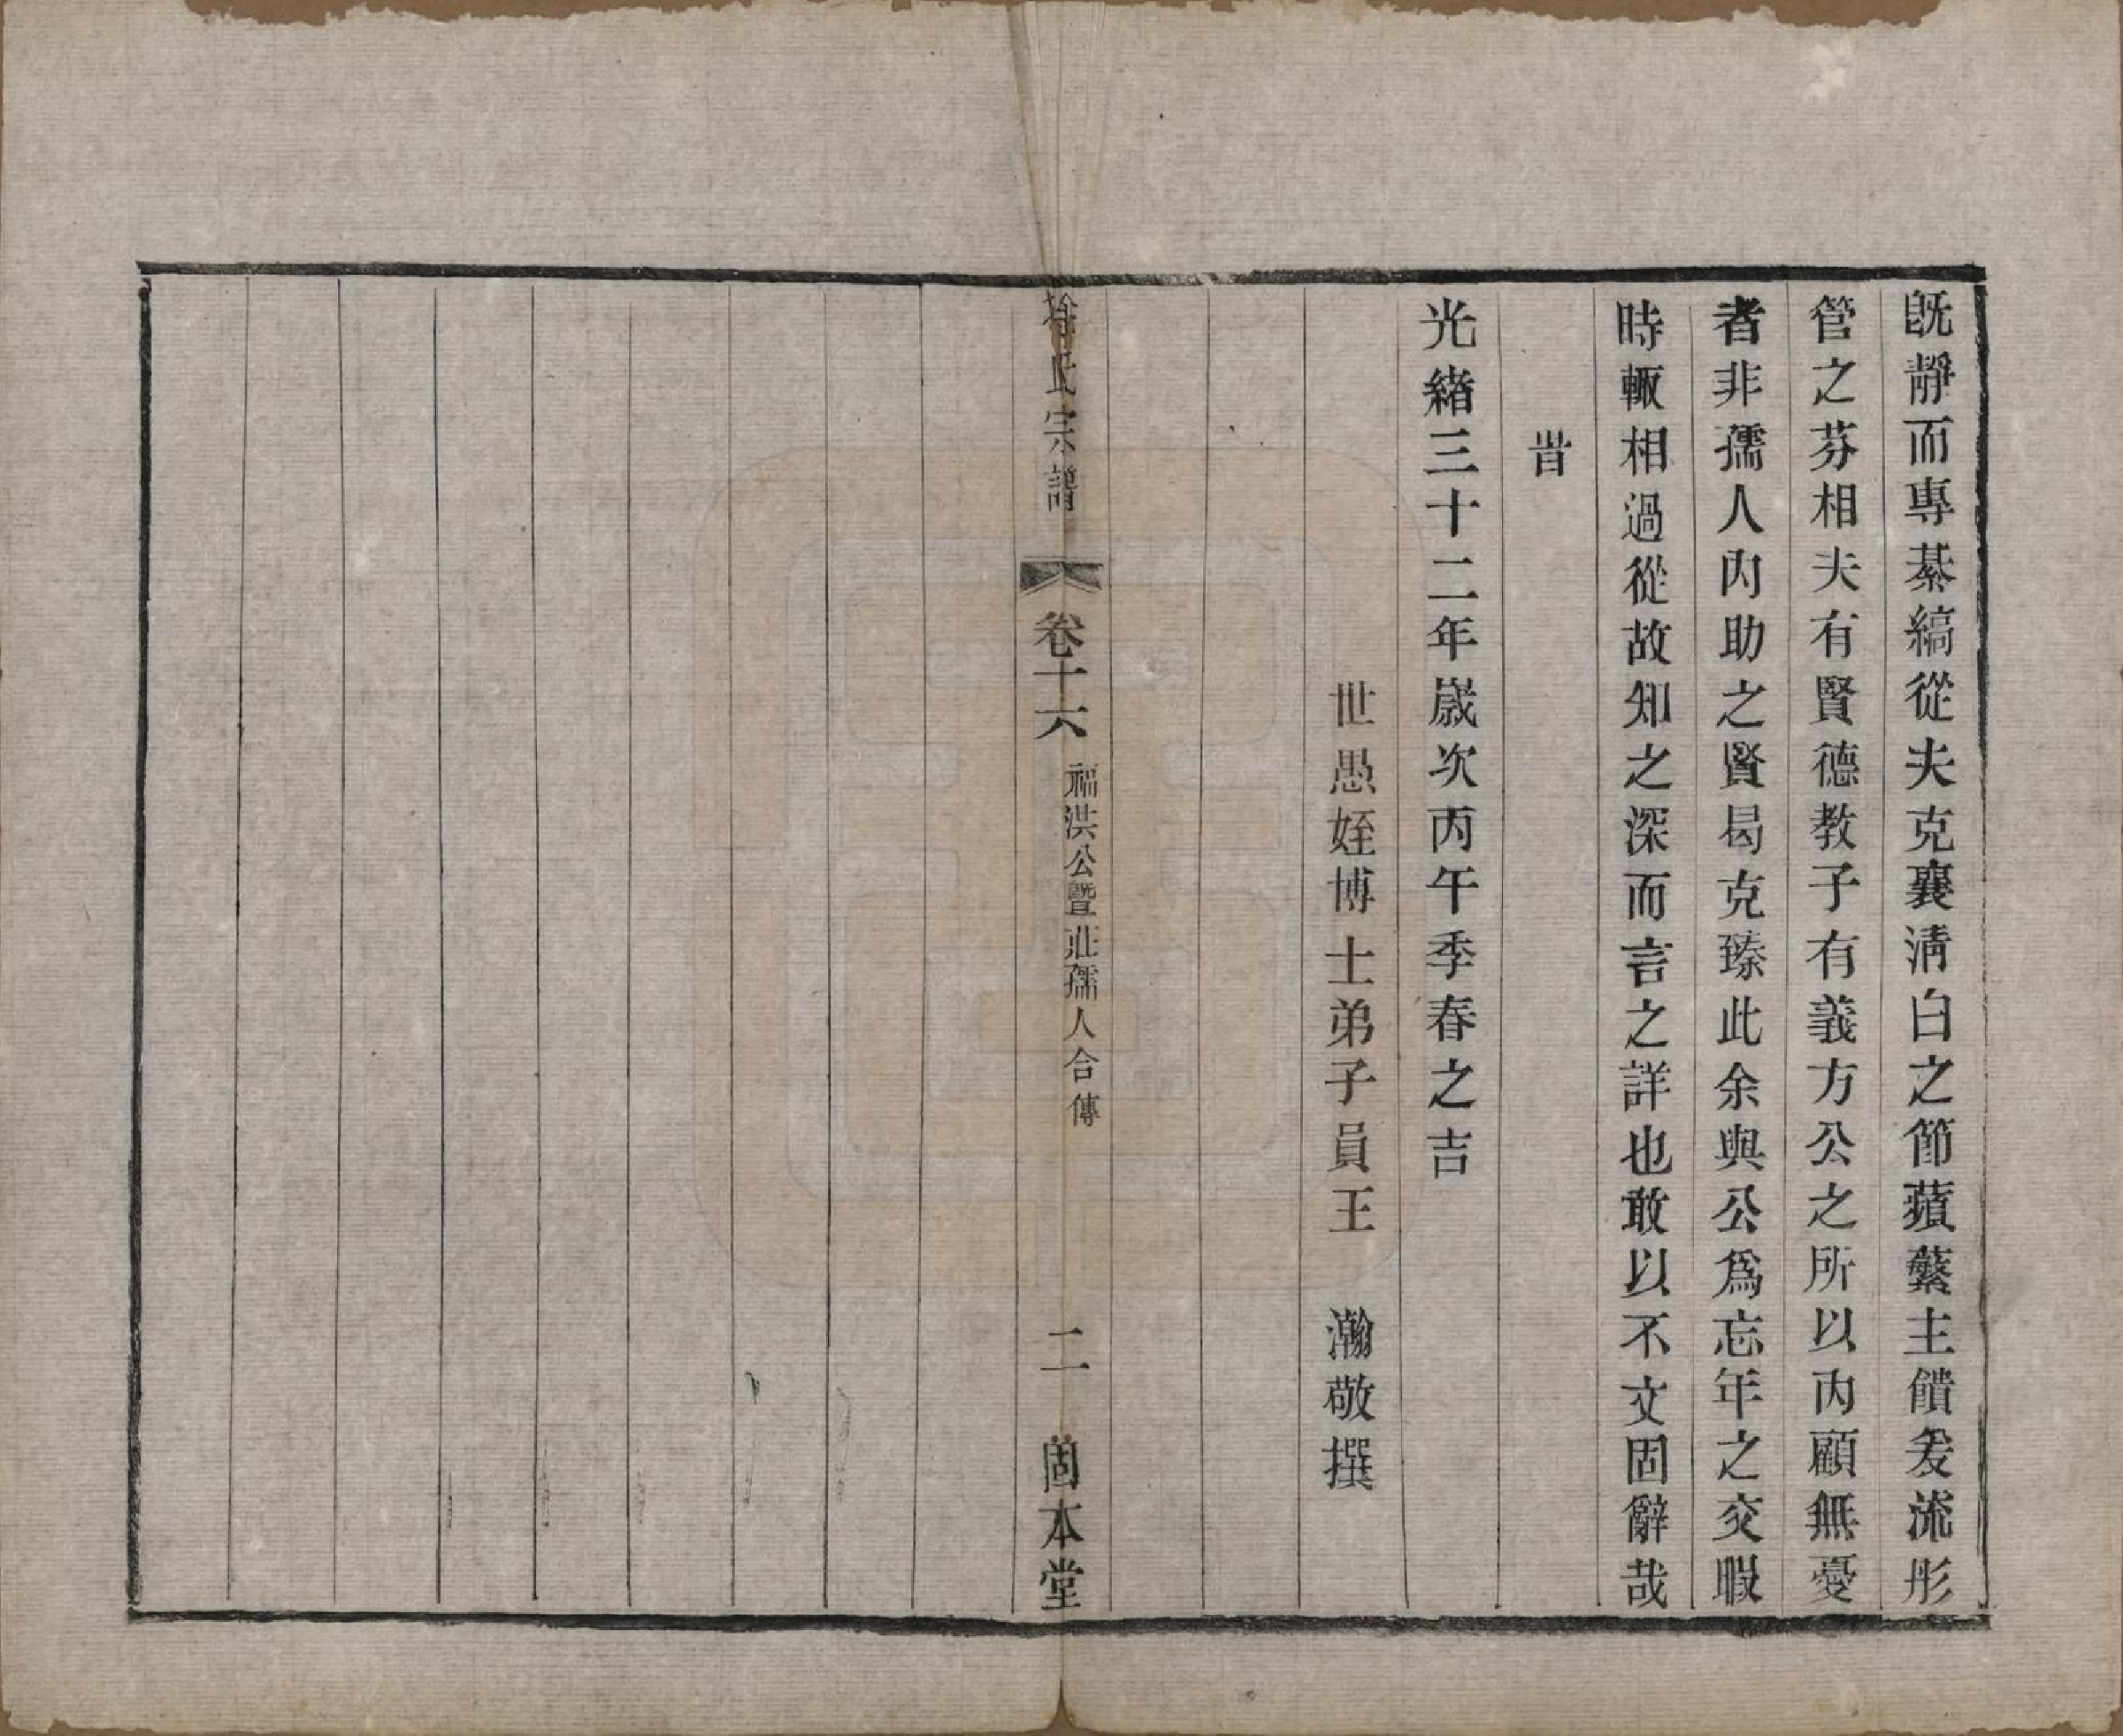 既靜而專綦縞從夫克襄淸白之節蘋蘩主饋爰流彤
管之芬相夫有賢德教子有義方公之所以內顧無憂
者非孺人內助之賢曷克臻此余與公爲忘年之交暇
時輒相過從故知之深而言之詳也敢以不文固辭哉
旹
光緒三十二年歲次丙午季春之吉
世愚姪博士弟子員王　瀚敬撰
徐氏宗譜　卷十六　福洪公暨莊孺人合傳　二　固本堂